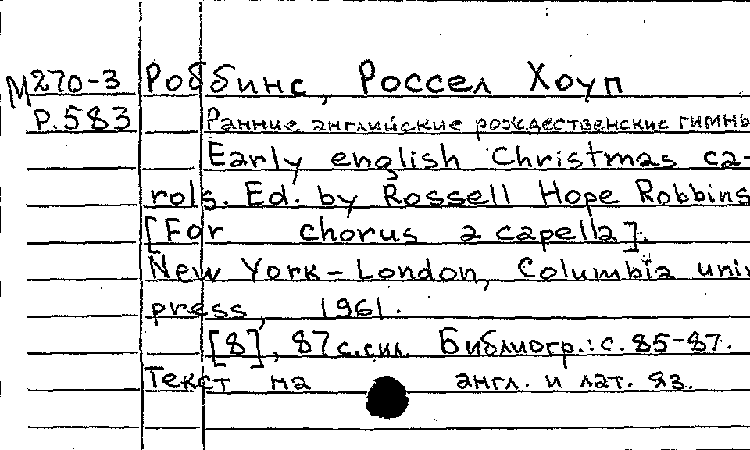 М270-3 Роббинс, Россел Хоуп
Р.583 Ранние английские рождественские гимны
Early english Christmas ca-
rols. Ed. by Rossell Hope Robbins
[For chorus a capella].
New York-London, Columbia univ
press, 1961.
[8], 87 с. сил. Библиогр.: с. 85-87.
Текст на англ. и лат. яз.